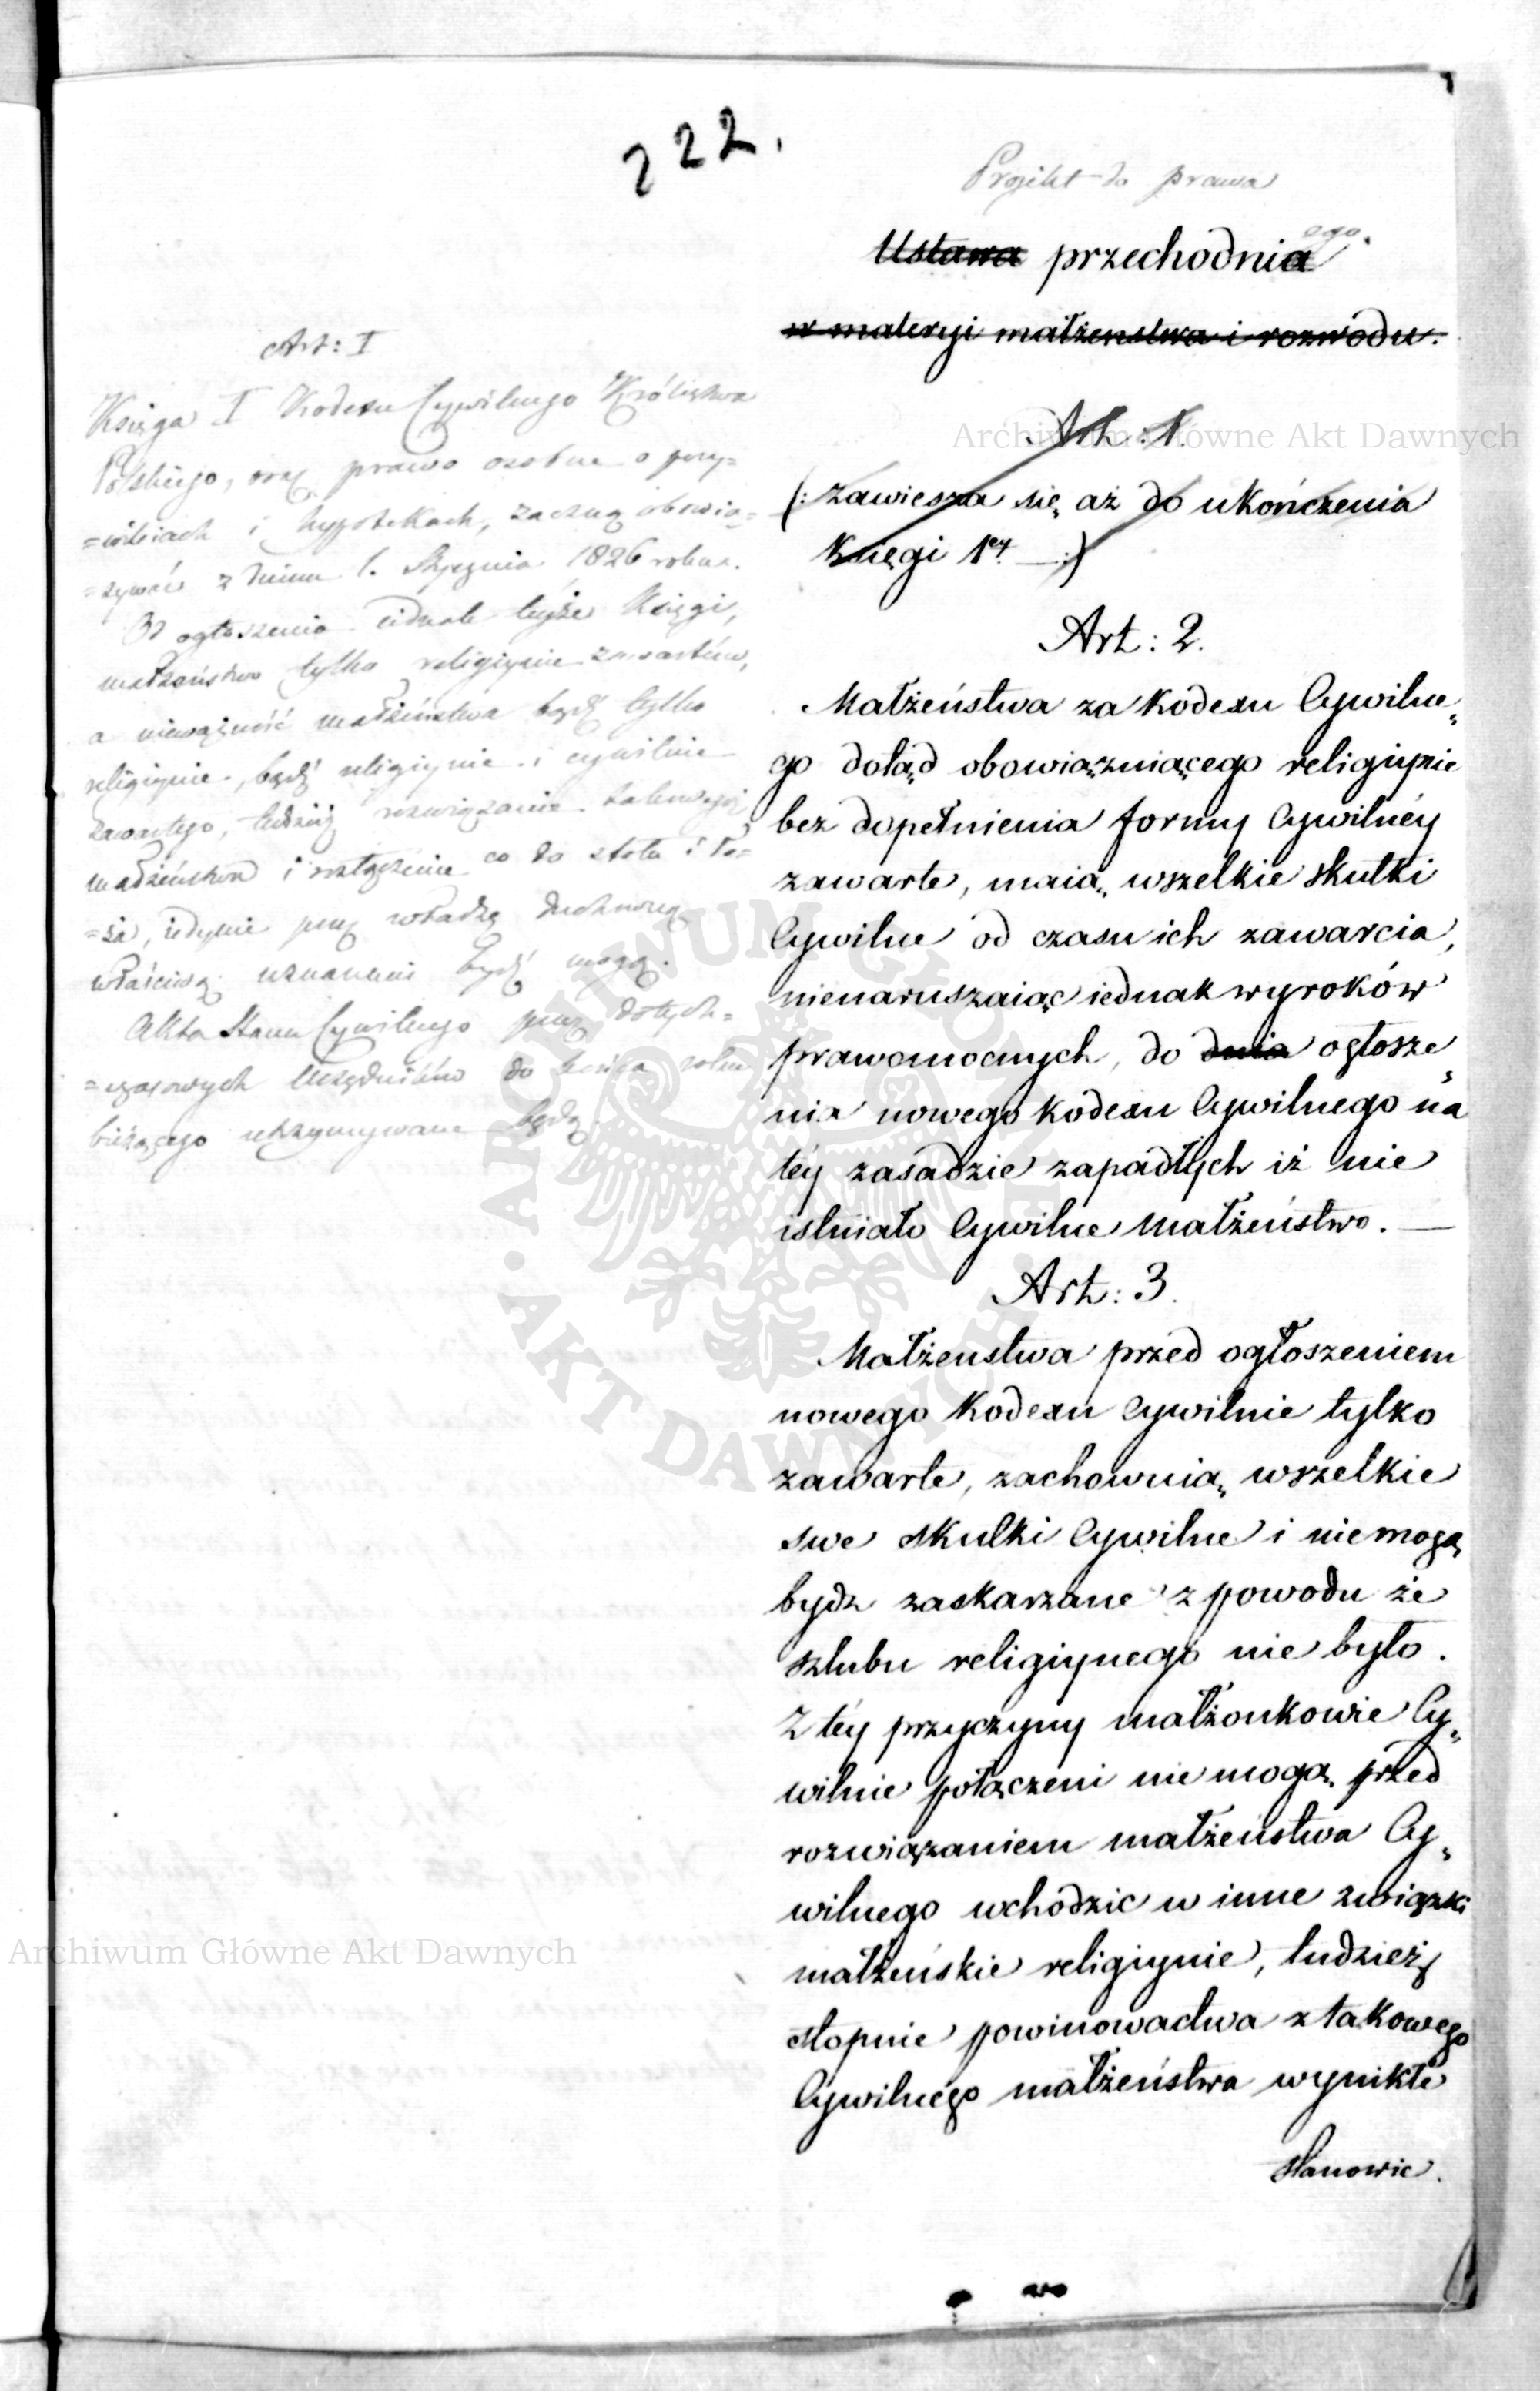 222.
Projekt do prawa
Ustawa przechodniaego.
w materyi małżenstwa i rozwodu.
Art: I
Księga I Kodexu Cywilnego Królestwa
Polskiego, oraz prawo osobne o przy=
=wileiach i hypotekach, zaczną obowią=
=zywać z dniem 1. Stycznia 1826 roku.
Od ogłoszenia iednak teyże Księgi,
małżeństwo tylko religiynie zawartem,
a nieważność małżeństwa bądź tylko
religiynie, bądź religiynie i cywilnie
zawartego, tudzież rozwiązanie takowegoż
małżeństwa i rozłączenie co do stołu i ło=
=ża, iedynie przez władzę duchowną
właściwą uznanemi bydź mogą.
Akta Stanu Cywilnego przez dotych=
=czasowych Urzędników do końca roku
bieżącego utrzymywane będą.
Art: 1.
(: Zawiesza się aż do ukończenia
Księgi 1ey — :)
Art: 2.
Małżeństwa za Kodexu Cywilne„
go dotąd obowiązuiącego religiynie
bez dopełnienia formy Cywilnéy
zawarte, maią wszelkie skutki
Cywilne od czasu ich zawarcia,
nienaruszaiąc iednak wyroków
prawomocnych, do dnia ogłosze„
nia nowego Kodexu Cywilnego na
téy zasadzie zapadłych iż nie
istniało Cywilne Małżeństwo. —
Art: 3.
Małżenstwa przed ogłoszeniem
nowego Kodexu Cywilnie tylko
zawarte, zachowuią wszelkie
swe skutki Cywilne i nie mogą
bydz zaskarzane z powodu że
szlubu religiynego nie było.
Z téy przyczyny małżonkowie Cy„
wilnie połączeni nie mogą przed
rozwiązaniem małżeństwa Cy„
wilnego wchodzic w inne związki
małżeńskie religiynie, tudzież
stopnie powinowactwa z takowego
Cywilnego małżeństwa wynikłe
stanowic.
Archiwum Główne Akt Dawnych
Archiwum Główne Akt Dawnych
ARCHIWUM GŁÓWNE · AKT DAWNYCH ·